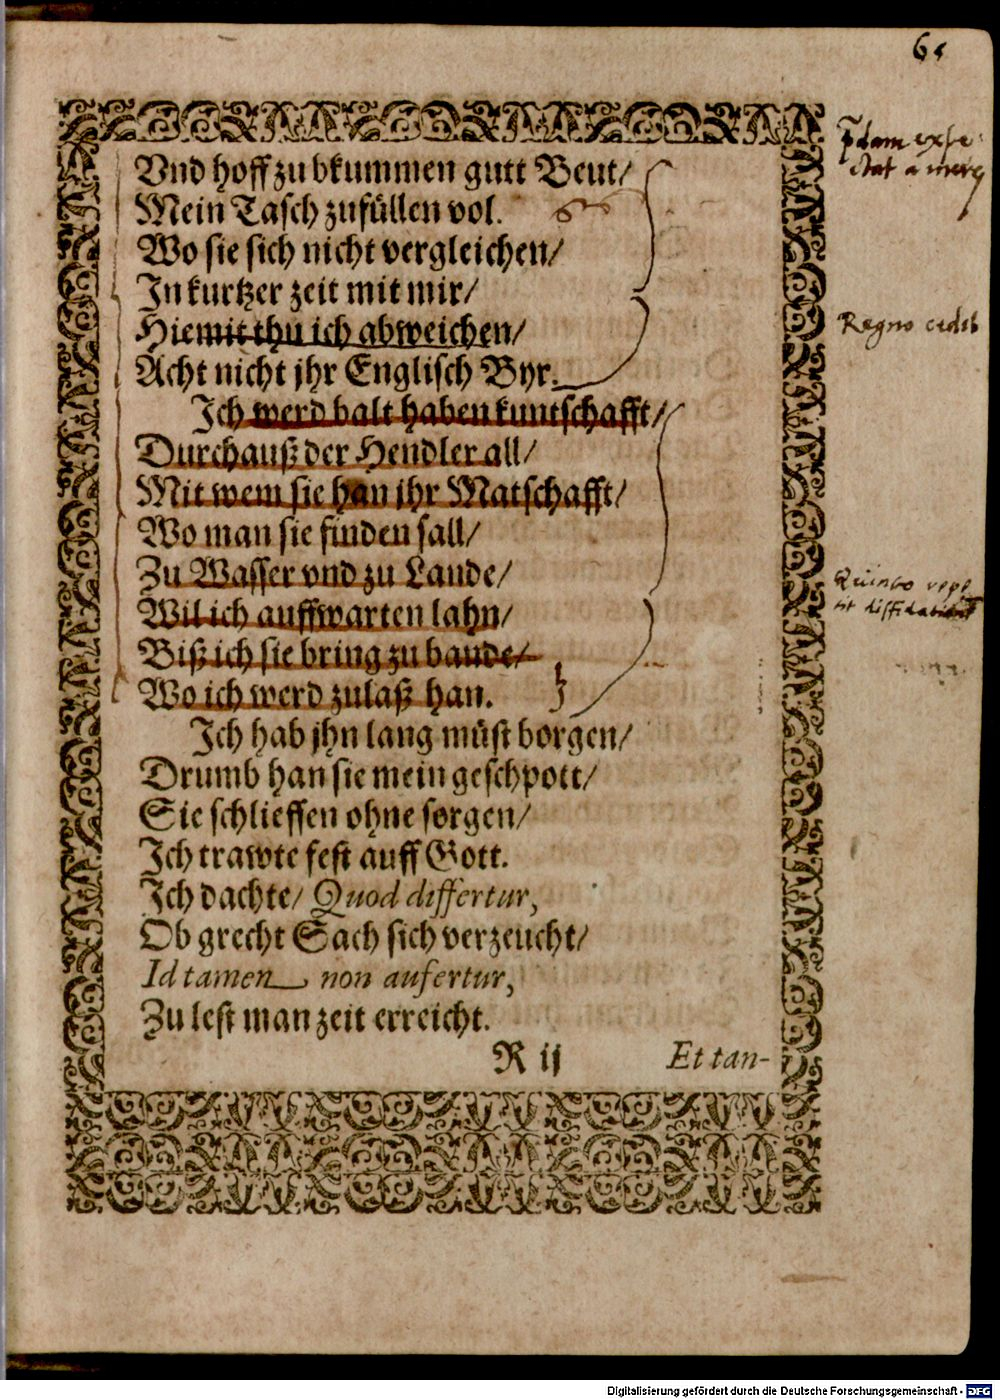 Vnd hoff zu bkummen gutt Beut/
Mein Tasch zufüllen vol.
Wo sie sich nicht vergleichen/
In kurtzer zeit mit mir/
Hiemit thu ich abweichen/
Acht nicht jhr Englisch Byr.
Ich werd balt haben kuntschafft/
Durchauß der Hendler all/
Mit wem sie han jhr Matschafft/
Wo man sie finden sall/
Zu Wasser vnd zu Lande/
Wil ich auffwarten lahn/
Biß ich sie bring zu bande/
Wo ich werd zulaß han.
Ich hab jhn lang müst borgen/
Drumb han sie mein geschpott/
Sie schlieffen ohne sorgen/
Ich trawte fest auff Gott.
Ich dachte/ Quod differtur,
Ob grecht Sach sich verzeucht/
Id tamen non aufertur,
Zu lest man zeit erreicht.
R ij
Et tan-
Regno
Digitalisierung gefördert durch die Deutsche Forschungsgemeinschaft - DFG